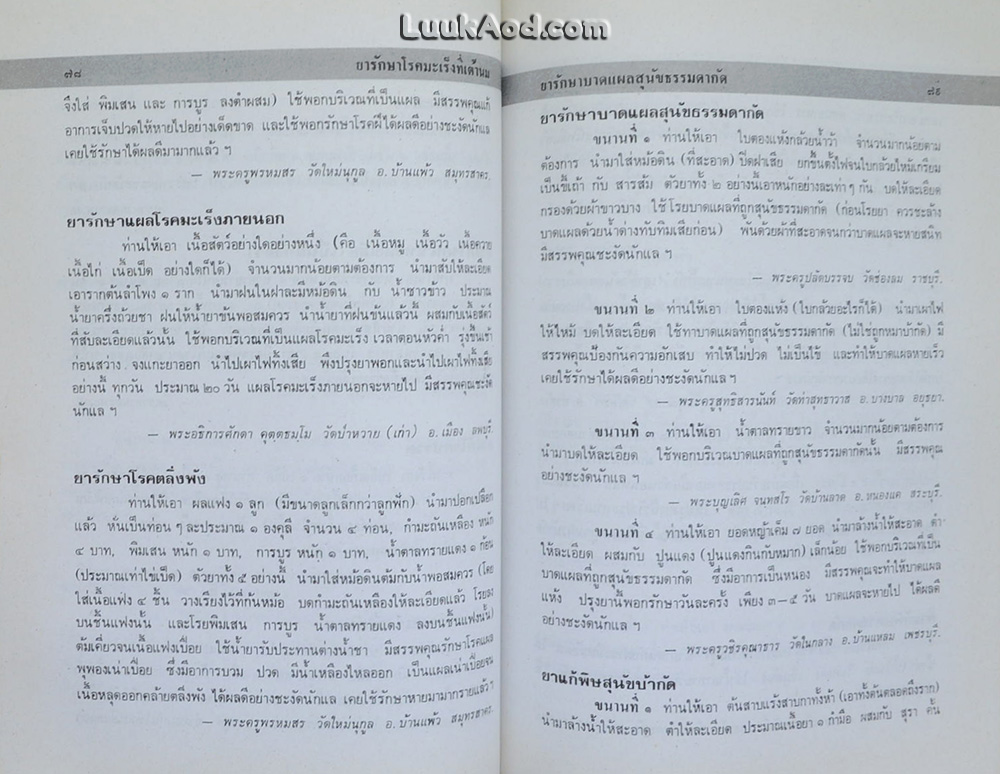 LuukAod.com
๗๘
ยารักษาโรคมะเร็งที่เต้านม
จึงใส่ พิมเสน และ การบูร ลงตำผสม) ใช้พอกบริเวณที่เป็นแผล มีสรรพคุณแก้
อาการเจ็บปวดให้หายไปอย่างเด็ดขาด และใช้พอกรักษาโรคฝีได้ผลดีอย่างชะงัดนักแล
เคยใช้รักษาได้ผลดีมามากแล้ว ฯ
— พระครูพรหมสร วัดใหม่นุกูล อ.บ้านแพ้ว สมุทรสาคร.
ยารักษาแผลโรคมะเร็งภายนอก
ท่านให้เอา เนื้อสัตว์อย่างใดอย่างหนึ่ง (คือ เนื้อหมู เนื้อวัว เนื้อควาย
เนื้อไก่ เนื้อเป็ด อย่างใดก็ได้) จำนวนมากน้อยตามต้องการ นำมาสับให้ละเอียด
เอารากต้นลำโพง ๑ ราก นำมาฝนในฝาละมีหม้อดิน กับ น้ำซาวข้าว ประมาณ
น้ำยาครึ่งถ้วยชา ฝนให้น้ำยาข้นพอสมควร นำน้ำยาที่ฝนข้นแล้วนี้ ผสมกับเนื้อสัตว์
ที่สับละเอียดแล้วนั้น ใช้พอกบริเวณที่เป็นแผลโรคมะเร็ง เวลาตอนหัวค่ำ รุ่งขึ้นเช้า
ก่อนสว่าง จงแกะยาออก นำไปเผาไฟทิ้งเสีย พึงปรุงยาพอกและนำไปเผาไฟทิ้งเสีย
อย่างนี้ ทุกวัน ประมาณ ๒๐ วัน แผลโรคมะเร็งภายนอกจะหายไป มีสรรพคุณชะงัด
นักแล ฯ
— พระอธิการศักดา คุตฺตธมฺโม วัดป่าหวาย (เก่า) อ.เมือง ลพบุรี.
ยารักษาโรคตลิ่งพัง
ท่านให้เอา ผลแฟง ๑ ลูก (มีขนาดลูกเล็กกว่าลูกฟัก) นำมาปอกเปลือก
แล้ว หั่นเป็นท่อน ๆ ละประมาณ ๑ องคุลี จำนวน ๔ ท่อน, กำมะถันเหลือง หนัก
๔ บาท, พิมเสน หนัก ๑ บาท, การบูร หนัก ๑ บาท, น้ำตาลทรายแดง ๑ ก้อน
(ประมาณเท่าไข่เป็ด) ตัวยาทั้ง ๕ อย่างนี้ นำมาใส่หม้อดินต้มกับน้ำพอสมควร (โดย
ใส่เนื้อแฟง ๔ ชิ้น วางเรียงไว้ที่ก้นหม้อ บดกำมะถันเหลืองให้ละเอียดแล้ว โรยลง
บนชิ้นแฟงนั้น และโรยพิมเสน การบูร น้ำตาลทรายแดง ลงบนชิ้นแฟงนั้น)
ต้มเคี่ยวจนเนื้อแฟงเปื่อย ใช้น้ำยารับประทานต่างน้ำชา มีสรรพคุณรักษาโรคแผล
พุพองเน่าเปื่อย ซึ่งมีอาการบวม ปวด มีน้ำเหลืองไหลออก เป็นแผลเน่าเปื่อยจน
เนื้อหลุดออกคล้ายตลิ่งพัง ได้ผลดีอย่างชะงัดนักแล เคยใช้รักษาหายมามากรายแล้ว ฯ
— พระครูพรหมสร วัดใหม่นุกูล อ.บ้านแพ้ว สมุทรสาคร.
ยารักษาบาดแผลสุนัขธรรมดากัด
๗๙
ยารักษาบาดแผลสุนัขธรรมดากัด
ขนานที่ ๑ ท่านให้เอา ใบตองแห้งกล้วยน้ำว้า จำนวนมากน้อยตาม
ต้องการ นำมาใส่หม้อดิน (ที่สะอาด) ปิดฝาเสีย ยกขึ้นตั้งไฟจนใบกล้วยไหม้เกรียม
เป็นขี้เถ้า กับ สารส้ม ตัวยาทั้ง ๒ อย่างนี้เอาหนักอย่างละเท่า ๆ กัน บดให้ละเอียด
กรองด้วยผ้าขาวบาง ใช้โรยบาดแผลที่ถูกสุนัขธรรมดากัด (ก่อนโรยยา ควรชะล้าง
บาดแผลด้วยน้ำด่างทับทิมเสียก่อน) พันด้วยผ้าที่สะอาดจนกว่าบาดแผลจะหายสนิท
มีสรรพคุณชะงัดนักแล ฯ
— พระครูปลัดบรรจบ วัดช่องลม ราชบุรี.
ขนานที่ ๒ ท่านให้เอา ใบตองแห้ง (ใบกล้วยอะไรก็ได้) นำมาเผาไฟ
ให้ไหม้ บดให้ละเอียด ใช้ทาบาดแผลที่ถูกสุนัขธรรมดากัด (ไม่ใช่ถูกหมาบ้ากัด) มี
สรรพคุณป้องกันความอักเสบ ทำให้ไม่ปวด ไม่เป็นไข้ และทำให้บาดแผลหายเร็ว
เคยใช้รักษาได้ผลดีอย่างชะงัดนักแล ฯ
— พระครูสุทธิสารนันท์ วัดท่าสุทธาวาส อ.บางบาล อยุธยา.
ขนานที่ ๓ ท่านให้เอา น้ำตาลทรายขาว จำนวนมากน้อยตามต้องการ
นำมาบดให้ละเอียด ใช้พอกบริเวณบาดแผลที่ถูกสุนัขธรรมดากัดนั้น มีสรรพคุณ
อย่างชะงัดนักแล ฯ
— พระบุญเลิศ จนฺทสโร วัดบ้านลาด อ.หนองแค สระบุรี.
ขนานที่ ๔ ท่านให้เอา ยอดหญ้าเค็ม ๗ ยอด นำมาล้างน้ำให้สะอาด ตำ
ให้ละเอียด ผสมกับ ปูนแดง (ปูนแดงกินกับหมาก) เล็กน้อย ใช้พอกบริเวณที่เป็น
บาดแผลที่ถูกสุนัขธรรมดากัด ซึ่งมีอาการเป็นหนอง มีสรรพคุณจะทำให้บาดแผล
แห้ง ปรุงยานี้พอกรักษาวันละครั้ง เพียง ๓—๕ วัน บาดแผลจะหายไป ได้ผลดี
อย่างชะงัดนักแล ฯ
— พระครูวชิรคุณาธาร วัดในกลาง อ.บ้านแหลม เพชรบุรี.
ยาแก้พิษสุนัขบ้ากัด
ขนานที่ ๑ ท่านให้เอา ต้นสาบแร้งสาบกาทั้งห้า (เอาทั้งต้นตลอดถึงราก)
นำมาล้างน้ำให้สะอาด ตำให้ละเอียด ประมาณเนื้อยา ๑ กำมือ ผสมกับ สุรา คั้น